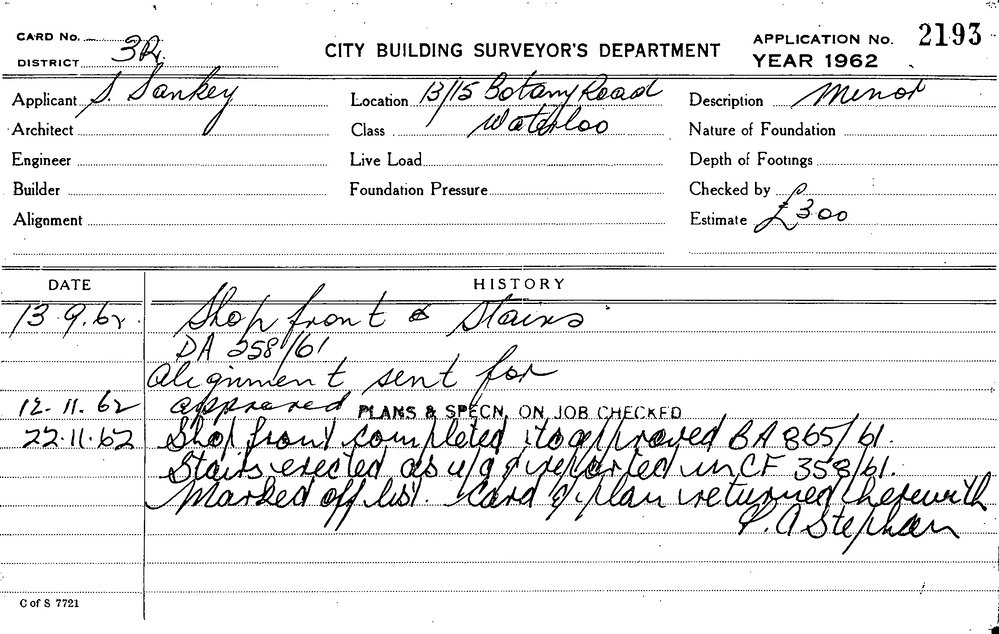 CARD No.
DISTRICT 3R.
CITY BUILDING SURVEYOR'S DEPARTMENT
APPLICATION No. 2193
YEAR 1962
Applicant S. Sankey
Location 13/15 Botany Road
Description Minor
Architect
Class Waterloo
Nature of Foundation
Engineer
Live Load
Depth of Footings
Builder
Foundation Pressure
Checked by
Alignment
Estimate £300
DATE HISTORY
13.9.62 Shop front & Stairs
DA 258/61
Alignment sent for
12.11.62 approved PLANS & SPECN. ON JOB CHECKED
22.11.62 Shop front completed to approved BA 865/61.
Stairs erected as reported in CF 358/61.
Marked off list. Card & plan returned herewith
P. A Stephan
C of S 7721